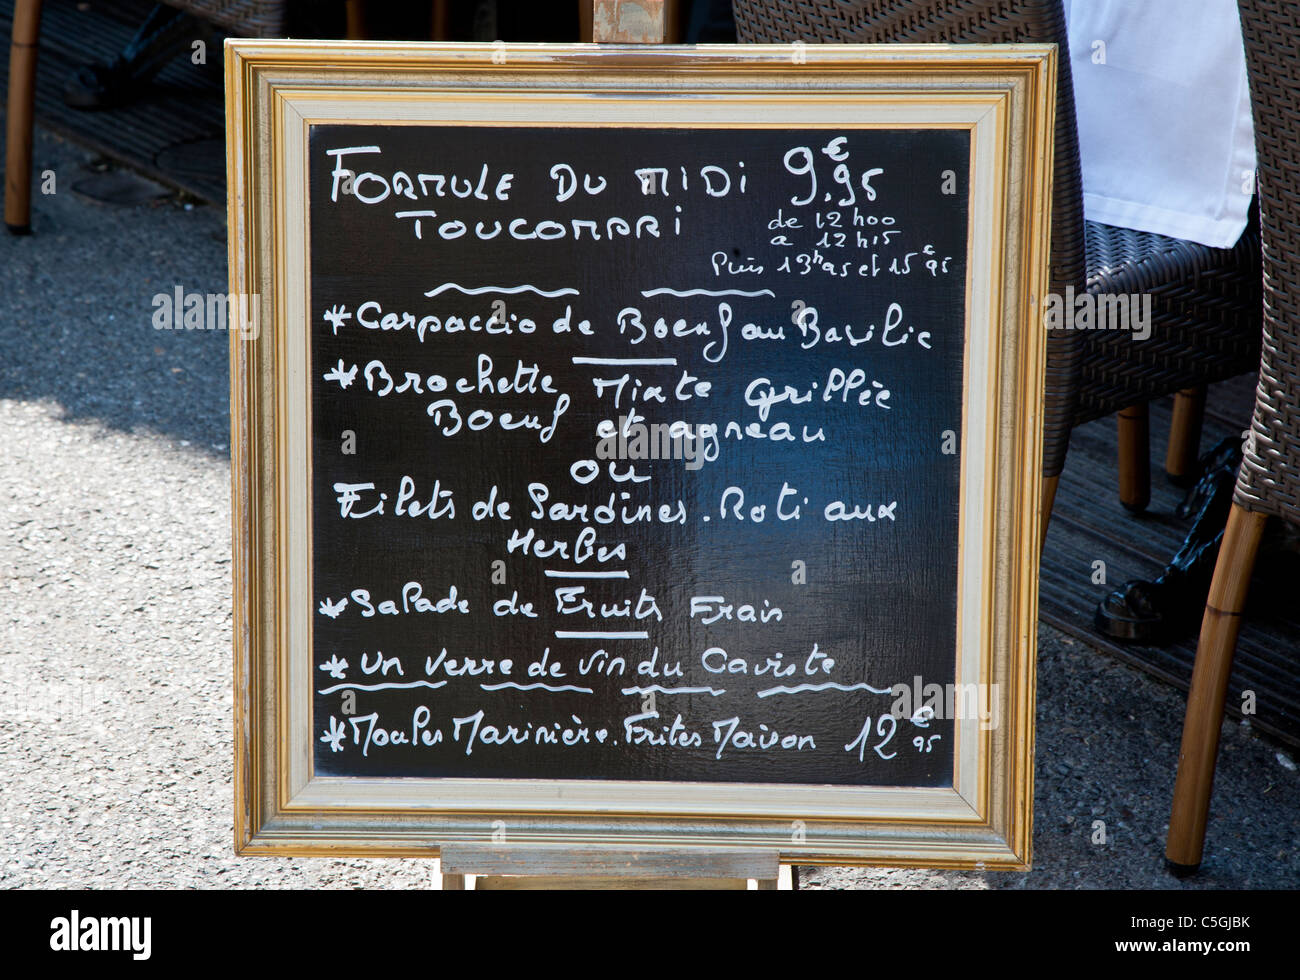 FORMULE DU MIDI 9.€95
TOUCOMPRI
de 12 h00
a 12 h15
Puis 13h45 et 15€95
*Carpaccio de Boeuf au Basilic
*Brochette Mixte Grillée
Boeuf et agneau
ou
Filets de Sardines. Roti aux
Herbes
*Salade de Fruits Frais
*Un Verre de vin du Caviste
*Moules Marinière. Frites Maison 12€95
alamy
Image ID: C5GJBK
www.alamy.com